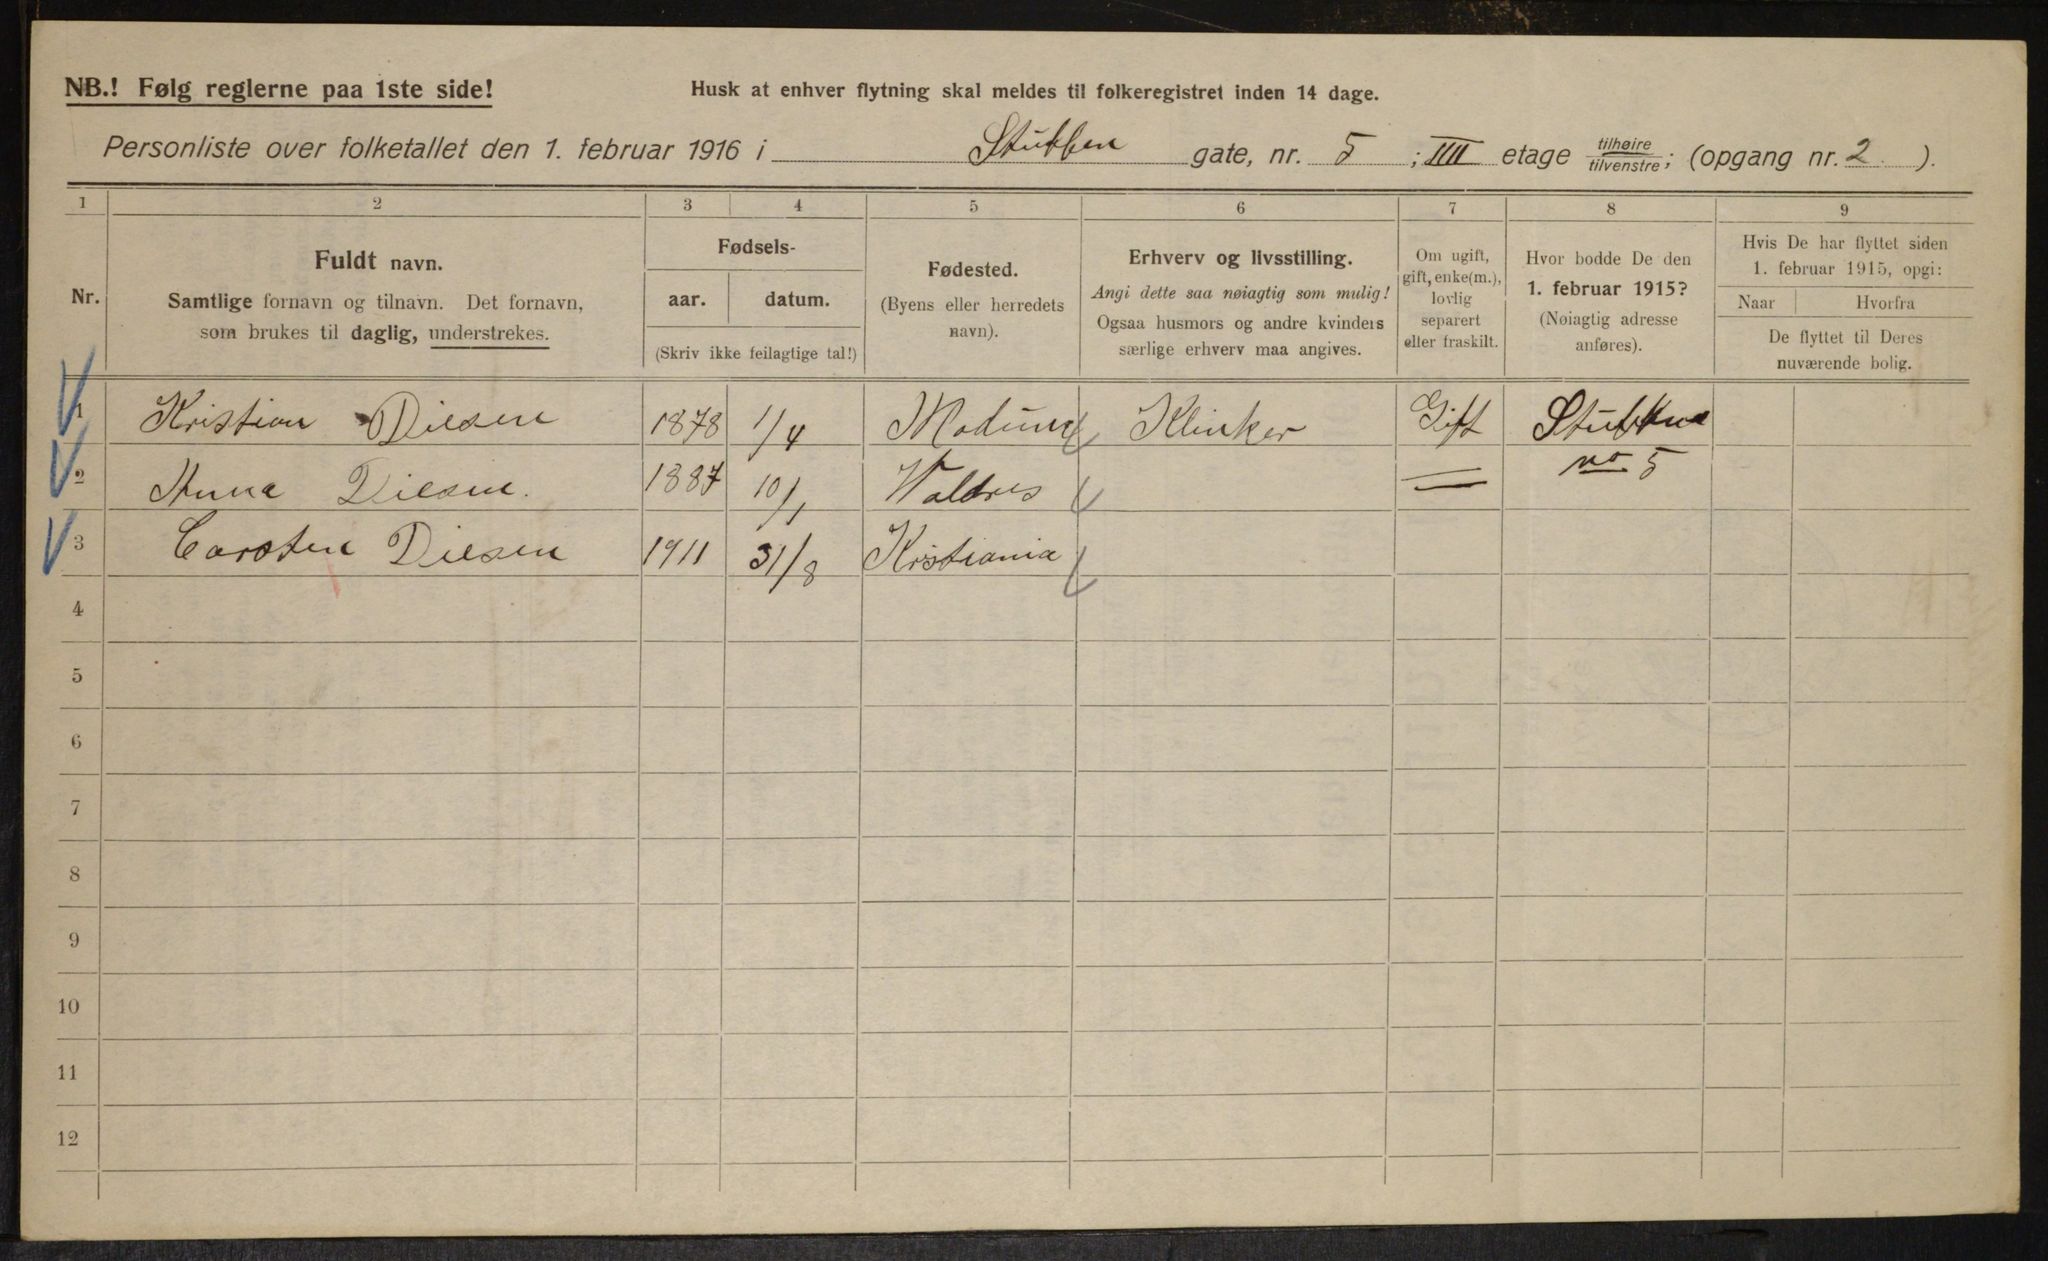 NB.! Følg reglerne paa 1ste side!
Husk at enhver flytning skal meldes til folkeregistret inden 14 dage.
Personliste over folketallet den 1. februar 1916 i Stubben gate, nr. 5; IIII etage tilhøire/tilvenstre; (opgang nr. 2).
1 2 3 4 5 6 7 8 9
Nr.
Fuldt navn.
Samtlige fornavn og tilnavn. Det fornavn,
som brukes til daglig, understrekes.
Fødsels-
aar. datum.
(Skriv ikke feilagtige tal!)
Fødested.
(Byens eller herredets
navn).
Erhverv og livsstilling.
Angi dette saa nøiagtig som mulig!
Ogsaa husmors og andre kvinders
særlige erhverv maa angives.
Om ugift,
gift, enke(m.),
lovlig
separert
eller fraskilt.
Hvor bodde De den
1. februar 1915?
(Nøiagtig adresse
anføres).
Hvis De har flyttet siden
1. februar 1915, opgi:
Naar Hvorfra
De flyttet til Deres
nuværende bolig.
1 Kristian Diesen 1878 1/4 Modum Klinker Gift
2 Anna Diesen. 1887 10/1 Valdres — no 5
3 Carsten Diesen 1911 31/8 Kristiania
4
5
6
7
8
9
10
11
12